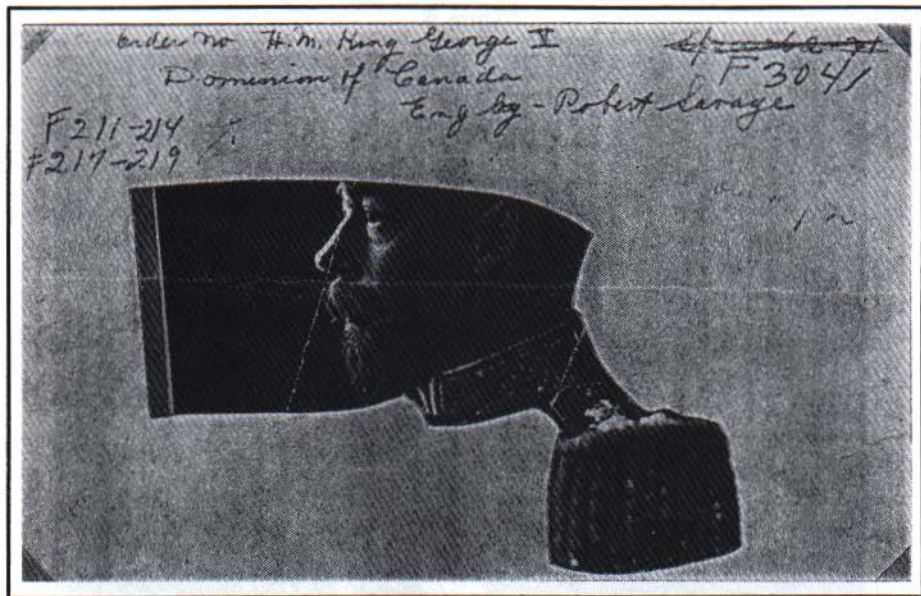 Order No H.M. King George V
F 3041
Dominion of Canada
Eng by - Robert Savage
F 211-214
F 217-219